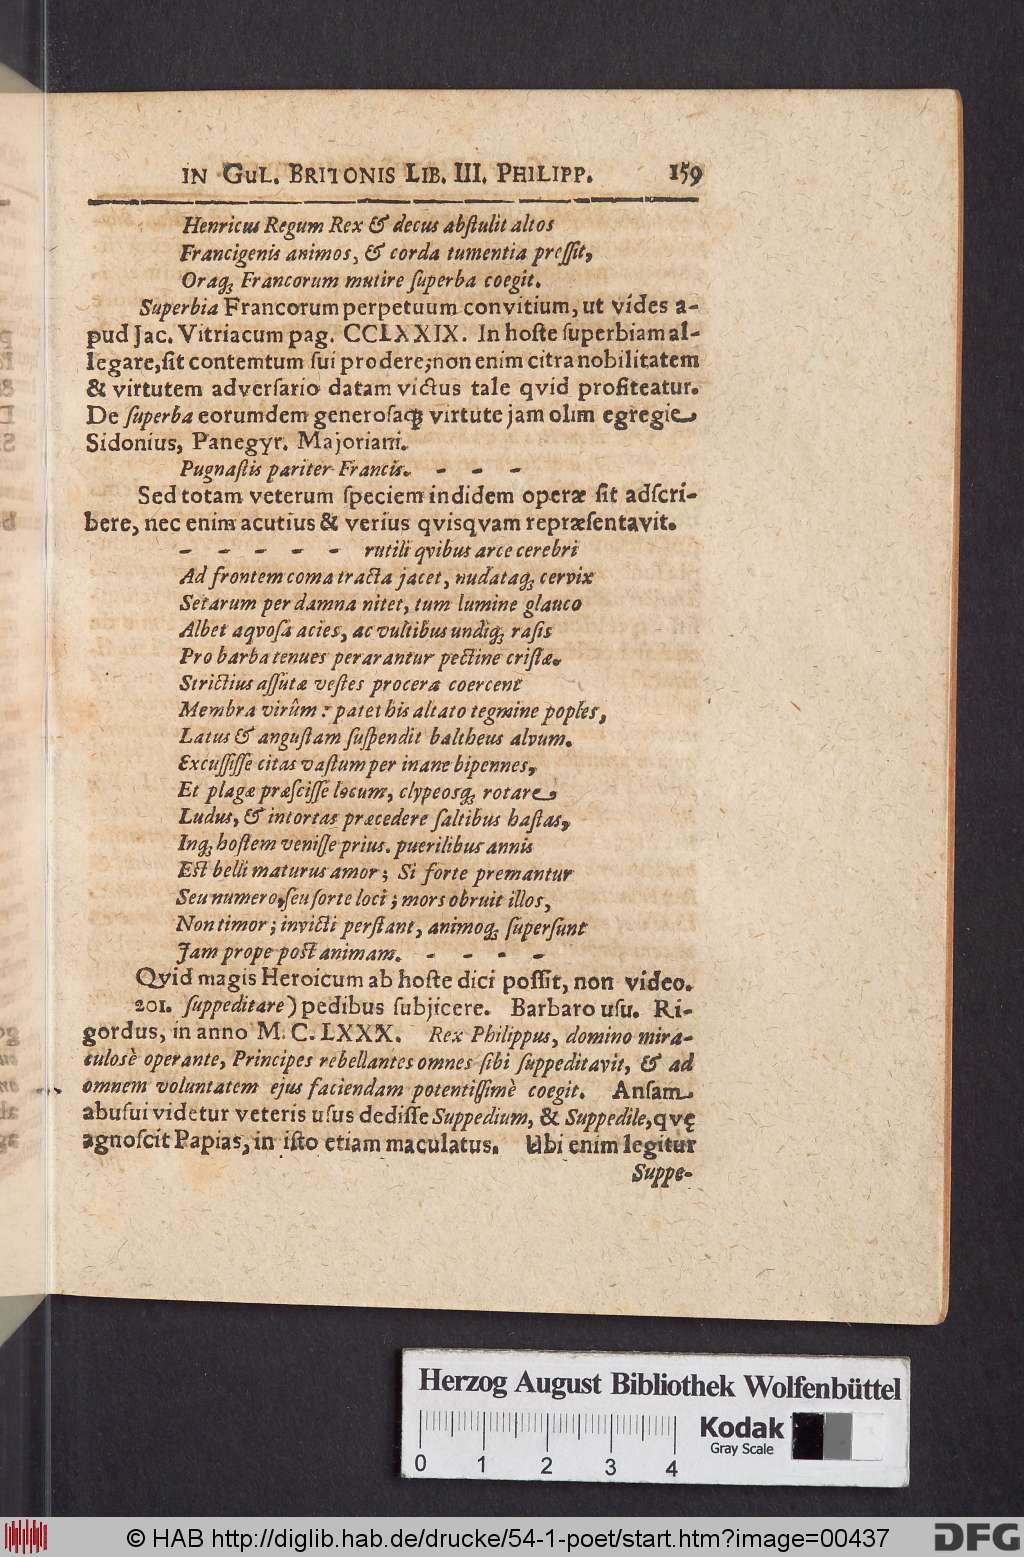 IN GUL. BRITONIS LIB. III. PHILIPP. 159
Henricus Regum Rex & decus abſtulit altos
Francigenis animos, & corda tumentia preſſit,
Oraq; Francorum mutire ſuperba coegit.
Superbia Francorum perpetuum convitium, ut vides a-
pud Jac. Vitriacum pag. CCLXXIX. In hoſte ſuperbiam al-
legare, ſit contemtum ſui prodere; non enim citra nobilitatem
& virtutem adverſario datam victus tale qvid profiteatur.
De ſuperba eorumdem generoſaq; virtute jam olim egregie
Sidonius, Panegyr. Majoriani.
Pugnaſtis pariter Francis. - - -
Sed totam veterum ſpeciem indidem operæ ſit adſcri-
bere, nec enim acutius & verius qvisqvam repræſentavit.
- - - - - - rutili qvibus arce cerebri
Ad frontem coma tracta jacet, nudataq; cervix
Setarum per damna nitet, tum lumine glauco
Albet aqvoſa acies, ac vultibus undiq; raſis
Pro barba tenues perarantur pectine criſtæ.
Strictius aſſutæ veſtes procera coercent
Membra virûm: patet his altato tegmine poples,
Latus & anguſtam ſuſpendit baltheus alvum.
Excuſſiſſe citas vaſtum per inane bipennes,
Et plagæ præſciſſe locum, clypeosq; rotare
Ludus, & intortas præcedere ſaltibus haſtas,
Inq; hoſtem veniſſe prius. puerilibus annis
Eſt belli maturus amor; Si forte premantur
Seu numero, ſeu ſorte loci; mors obruit illos,
Non timor; invicti perſtant, animoq; ſuperſunt
Jam prope poſt animam. - - - -
Qvid magis Heroicum ab hoſte dici poſſit, non video.
201. ſuppeditare) pedibus ſubjicere. Barbaro uſu. Ri-
gordus, in anno M. C. LXXX. Rex Philippus, domino mira-
culosè operante, Principes rebellantes omnes ſibi ſuppeditavit, & ad
omnem voluntatem ejus faciendam potentiſſimè coegit. Anſam
abuſui videtur veteris uſus dediſſe Suppedium, & Suppedile, qvę
agnoſcit Papias, in iſto etiam maculatus. Ubi enim legitur
Suppe-
Herzog August Bibliothek Wolfenbüttel
Kodak
Gray Scale
0 1 2 3 4
© HAB http://diglib.hab.de/drucke/54-1-poet/start.htm?image=00437
DFG